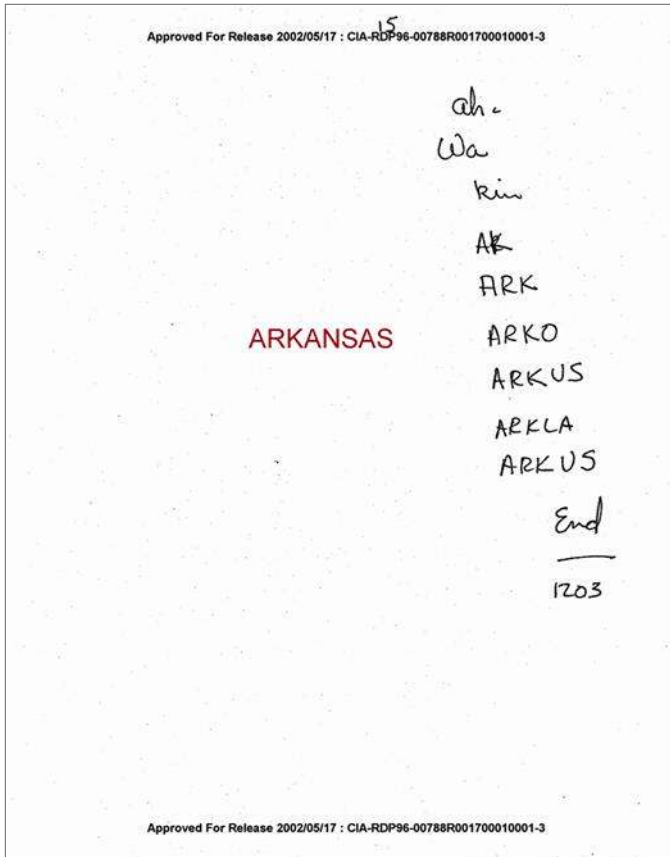 15
Approved For Release 2002/05/17 : CIA-RDP96-00788R001700010001-3
ah.
Wa
kin
AK
ARK
ARKANSAS
ARKO
ARKUS
ARKLA
ARKUS
End
1203
Approved For Release 2002/05/17 : CIA-RDP96-00788R001700010001-3